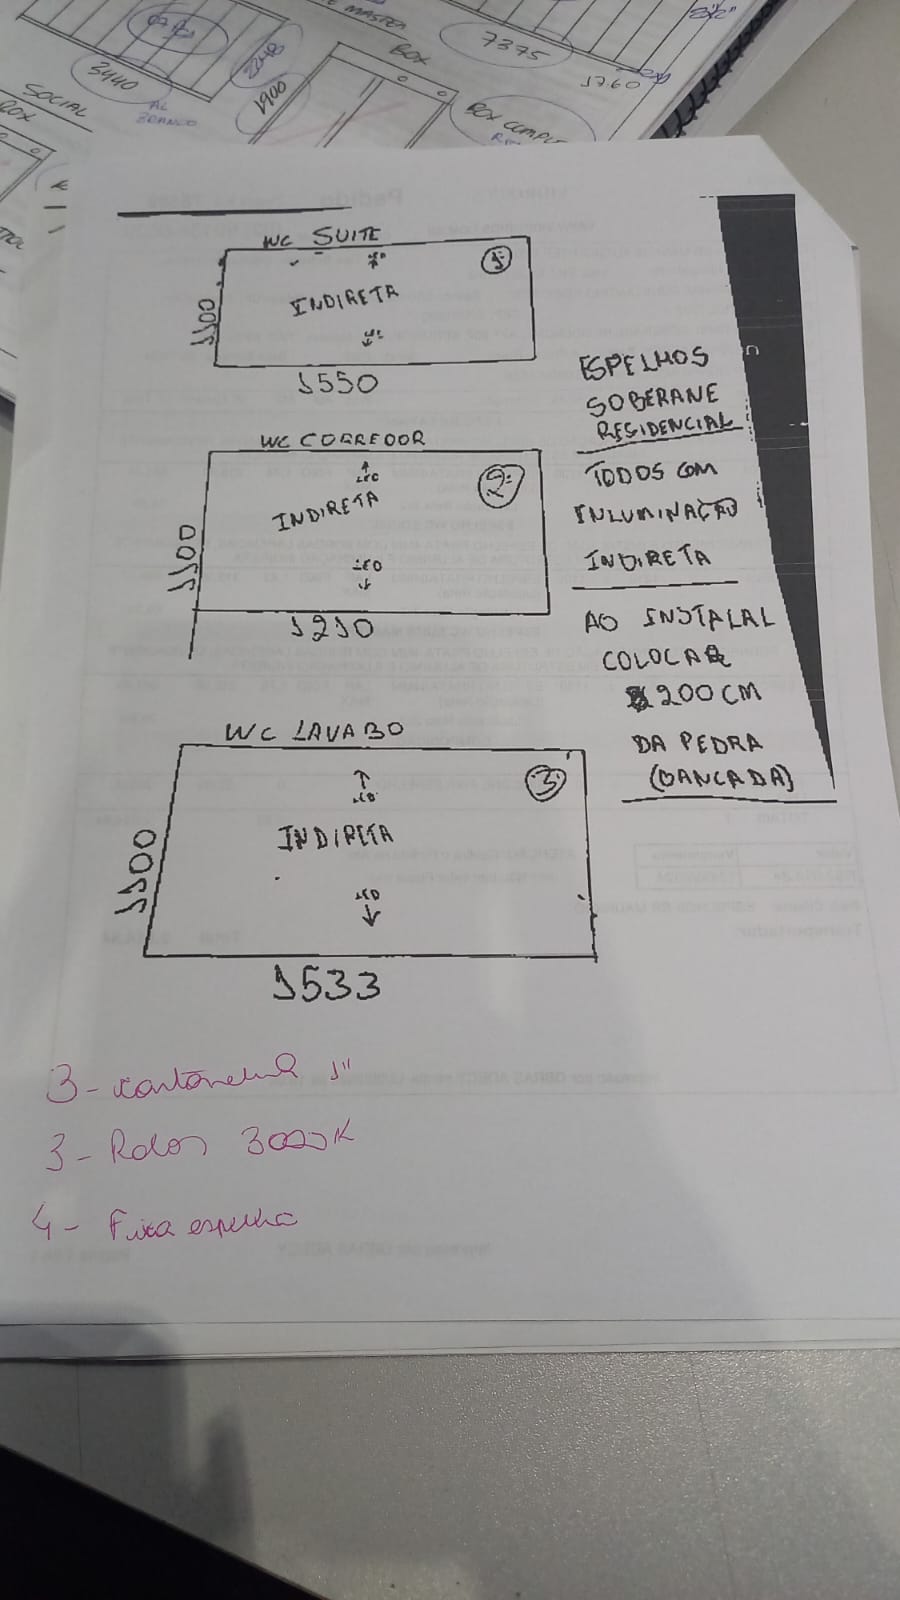 E MASTER
BOX
7375
1760
3440
2248
1900
AL
BRANCO
SOCIAL
BOX
BOX COMPL
Pedido
WC SUITE
1
LED
INDIRETA
LED
1100
1550
WC CORREDOR
2
LED
INDIRETA
LED
1100
1210
WC LAVABO
3
LED
INDIRETA
LED
1100
1533
ESPELHOS
SOBERANE
RESIDENCIAL
TODOS COM
INLUMINAÇÃO
INDIRETA
AO INSTALAL
COLOCAR
200 CM
DA PEDRA
(BANCADA)
3 - cantoneira 1"
3 - Rolos 3000K
4 - Fixa espelho